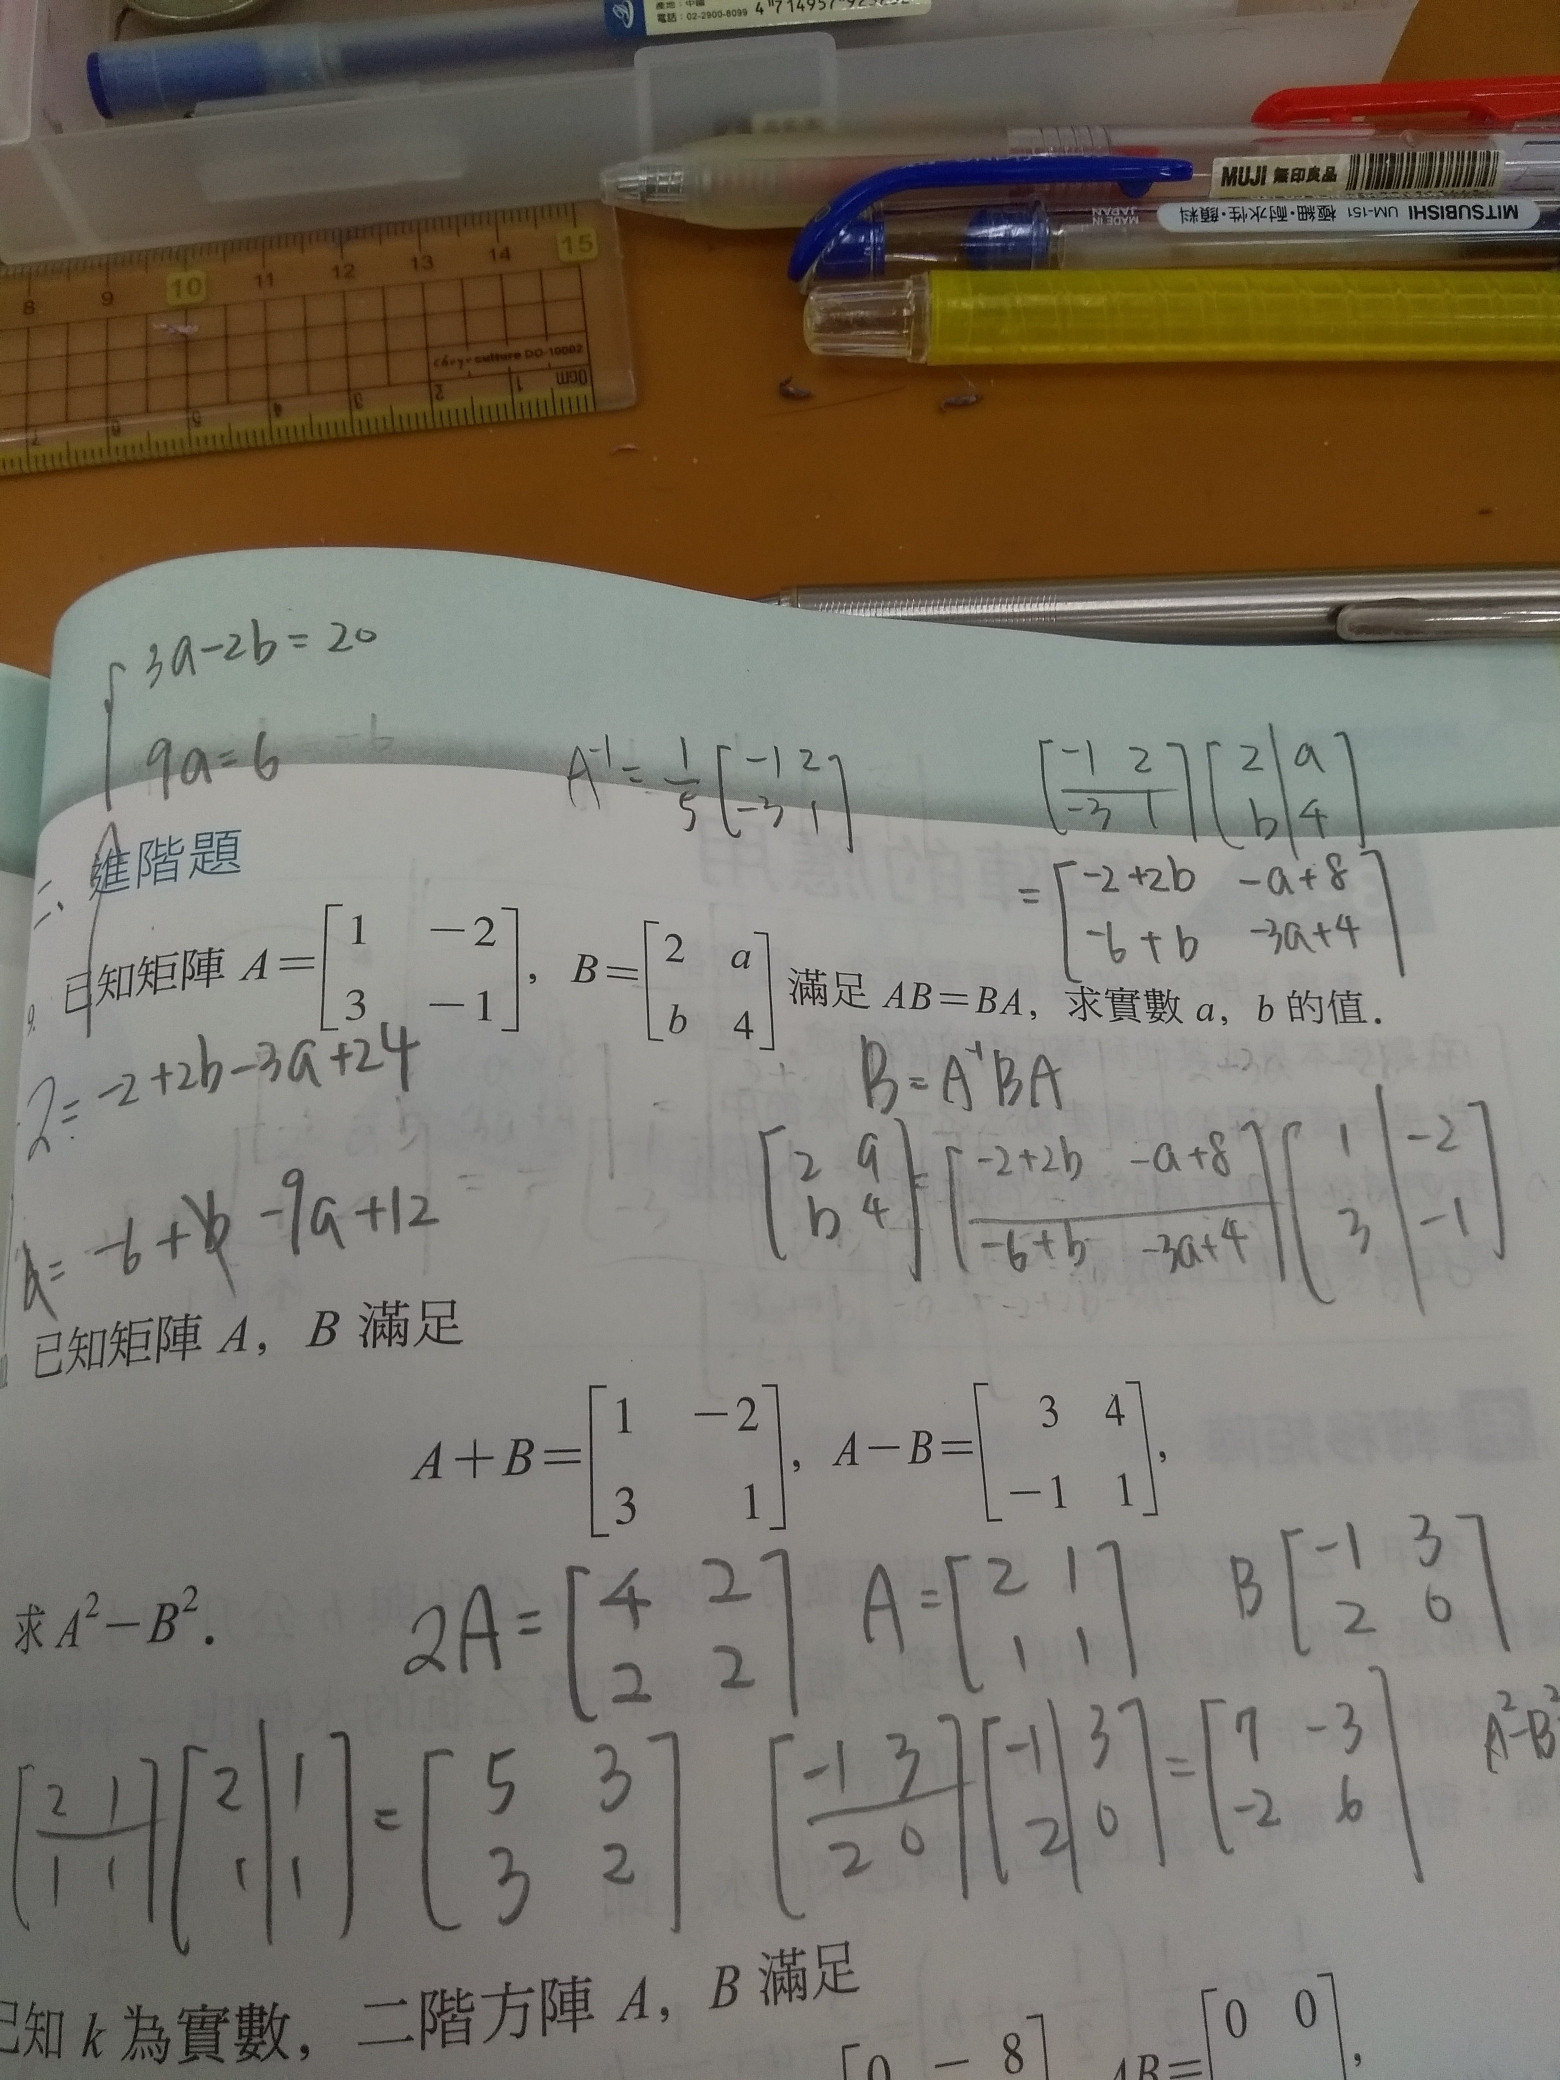 產地:中國
電話:02-2900-8099
MUJI 無印良品
MITSUBISHI UM-151 極細・耐水性・顔料
MADE IN JAPAN
8 9 10 11 12 13 14 15
culture DO-10002
7 6 5 4 3 2 1 0cm
3a-2b=20
9a=6
A⁻¹=1/5[-1 2; -3 1]
[-1 2; -3 1][2 a; b 4]
=[-2+2b -a+8; -6+b -3a+4]
二、進階題
9. 已知矩陣 A=[1 -2; 3 -1], B=[2 a; b 4] 滿足 AB=BA, 求實數 a, b 的值.
2=-2+2b-3a+24
B=A⁻¹BA
[2 a; b 4]=[-2+2b -a+8; -6+b -3a+4][1 -2; 3 -1]
=-6+b-9a+12
已知矩陣 A, B 滿足
A+B=[1 -2; 3 1], A-B=[3 4; -1 1],
求 A²-B².
2A=[4 2; 2 2] A=[2 1; 1 1] B[-1 3; 2 0]
[2 1; 1 1][2 1; 1 1]=[5 3; 3 2] [-1 3; 2 0][-1 3; 2 0]=[7 -3; -2 6] A²-B²
已知 k 為實數, 二階方陣 A, B 滿足
[0 -8 AB=[0 0 ,